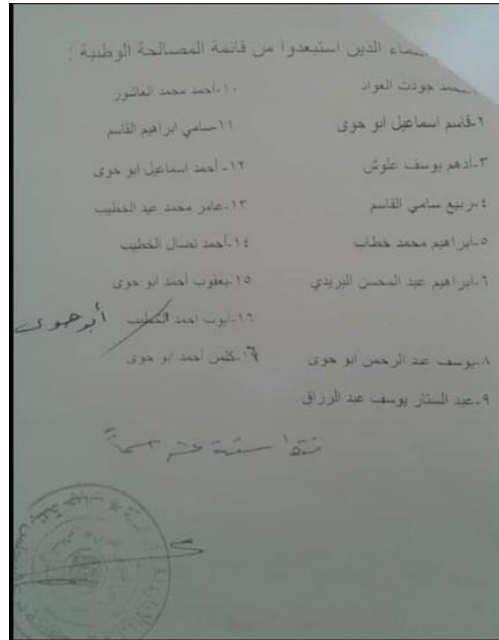 الأسماء الذين استبعدوا من قائمة المصالحة الوطنية :
محمد جودت العواد
٢-قاسم اسماعيل ابو حوى
٣-أدهم يوسف علوش
٤-ربيع سامي القاسم
٥-ابراهيم محمد خطاب
٦-ابراهيم عبد المحسن البريدي
٨-يوسف عبد الرحمن ابو حوى
٩-عبد الستار يوسف عبد الرزاق
١٠-أحمد محمد العاشور
١١-سامي ابراهيم القاسم
١٢-أحمد اسماعيل ابو حوى
١٣-عامر محمد عيد الخطيب
١٤-أحمد نضال الخطيب
١٥-يعقوب أحمد ابو حوى
١٦-أيوب احمد الخطيب أبو حوى
١٦-كلمن أحمد ابو حوى
فقط ستة عشر اسماً